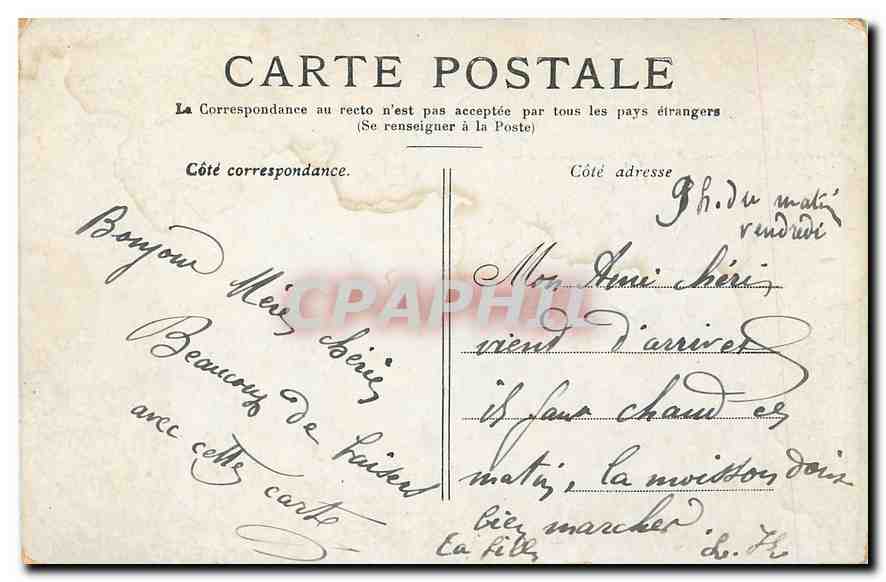 CARTE POSTALE
La Correspondance au recto n'est pas acceptée par tous les pays étrangers
(Se renseigner à la Poste)
Côté correspondance.
Côté adresse
Bonjour Mère chérie
Beaucoup de baisers
avec cette carte
9 h. du matin
vendredi
Mon Ami chéri
viend d'arriver
il faut chaud ce
matin, la moisson dois
bien marcher.
ta fille
CPAPHIL